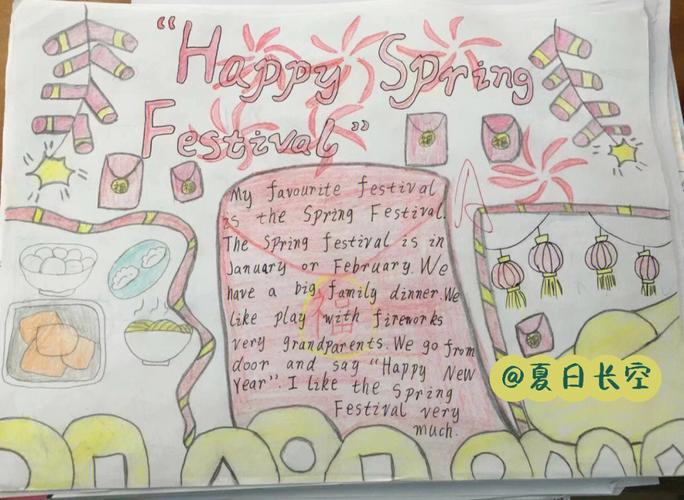 "Happy Spring
Festival"
My favourite festival
is the Spring Festival.
The Spring festival is in
January or February. We
have a big family dinner. We
like play with fireworks
very grandparents. We go from
door and say "Happy New
Year". I like the Spring
Festival very
much.
福
@夏日长空